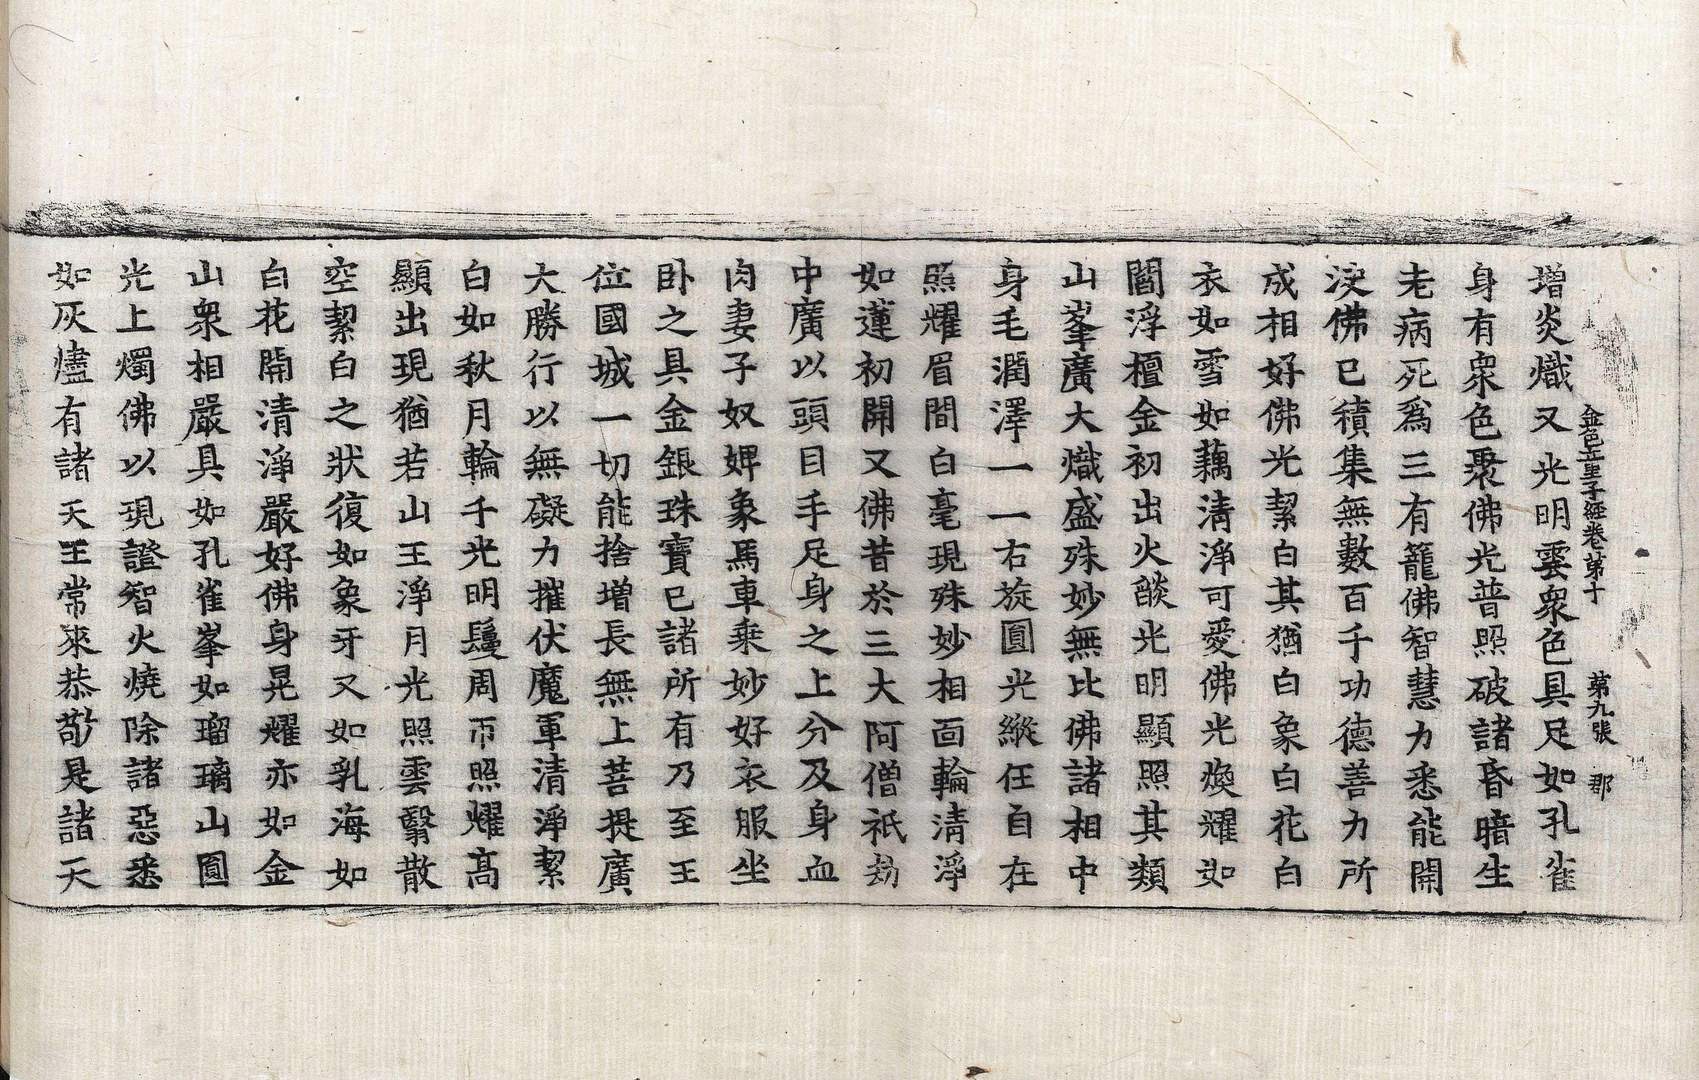 增炎熾又光明雲衆色具足如孔雀
金色王童子經卷第十　第九張　那
身有衆色聚佛光普照破諸昏暗生
老病死爲三有籠佛智慧力悉能開
浸佛已積集無數百千功德善力所
成相好佛光潔白其猶白象白花白
衣如雪如藕清淨可愛佛光煥耀如
閻浮檀金初出火燄光明顯照其類
山峯廣大熾盛殊妙無比佛諸相中
身毛潤澤一一右旋圓光縱任自在
照耀眉間白毫現殊妙相面輪清淨
如蓮初開又佛昔於三大阿僧祇劫
中廣以頭目手足身之上分及身血
肉妻子奴婢象馬車乘妙好衣服坐
卧之具金銀珠寶已諸所有乃至王
位國城一切能捨增長無上菩提廣
大勝行以無礙力摧伏魔軍清淨潔
白如秋月輪千光明鬘周帀照耀高
顯出現猶若山王淨月光照雲翳散
空潔白之狀復如象牙又如乳海如
白花開清淨嚴好佛身晃耀亦如金
山衆相嚴具如孔雀峯如瑠璃山圓
光上燭佛以現證智火燒除諸惡悉
如灰燼有諸天王常來恭敬是諸天